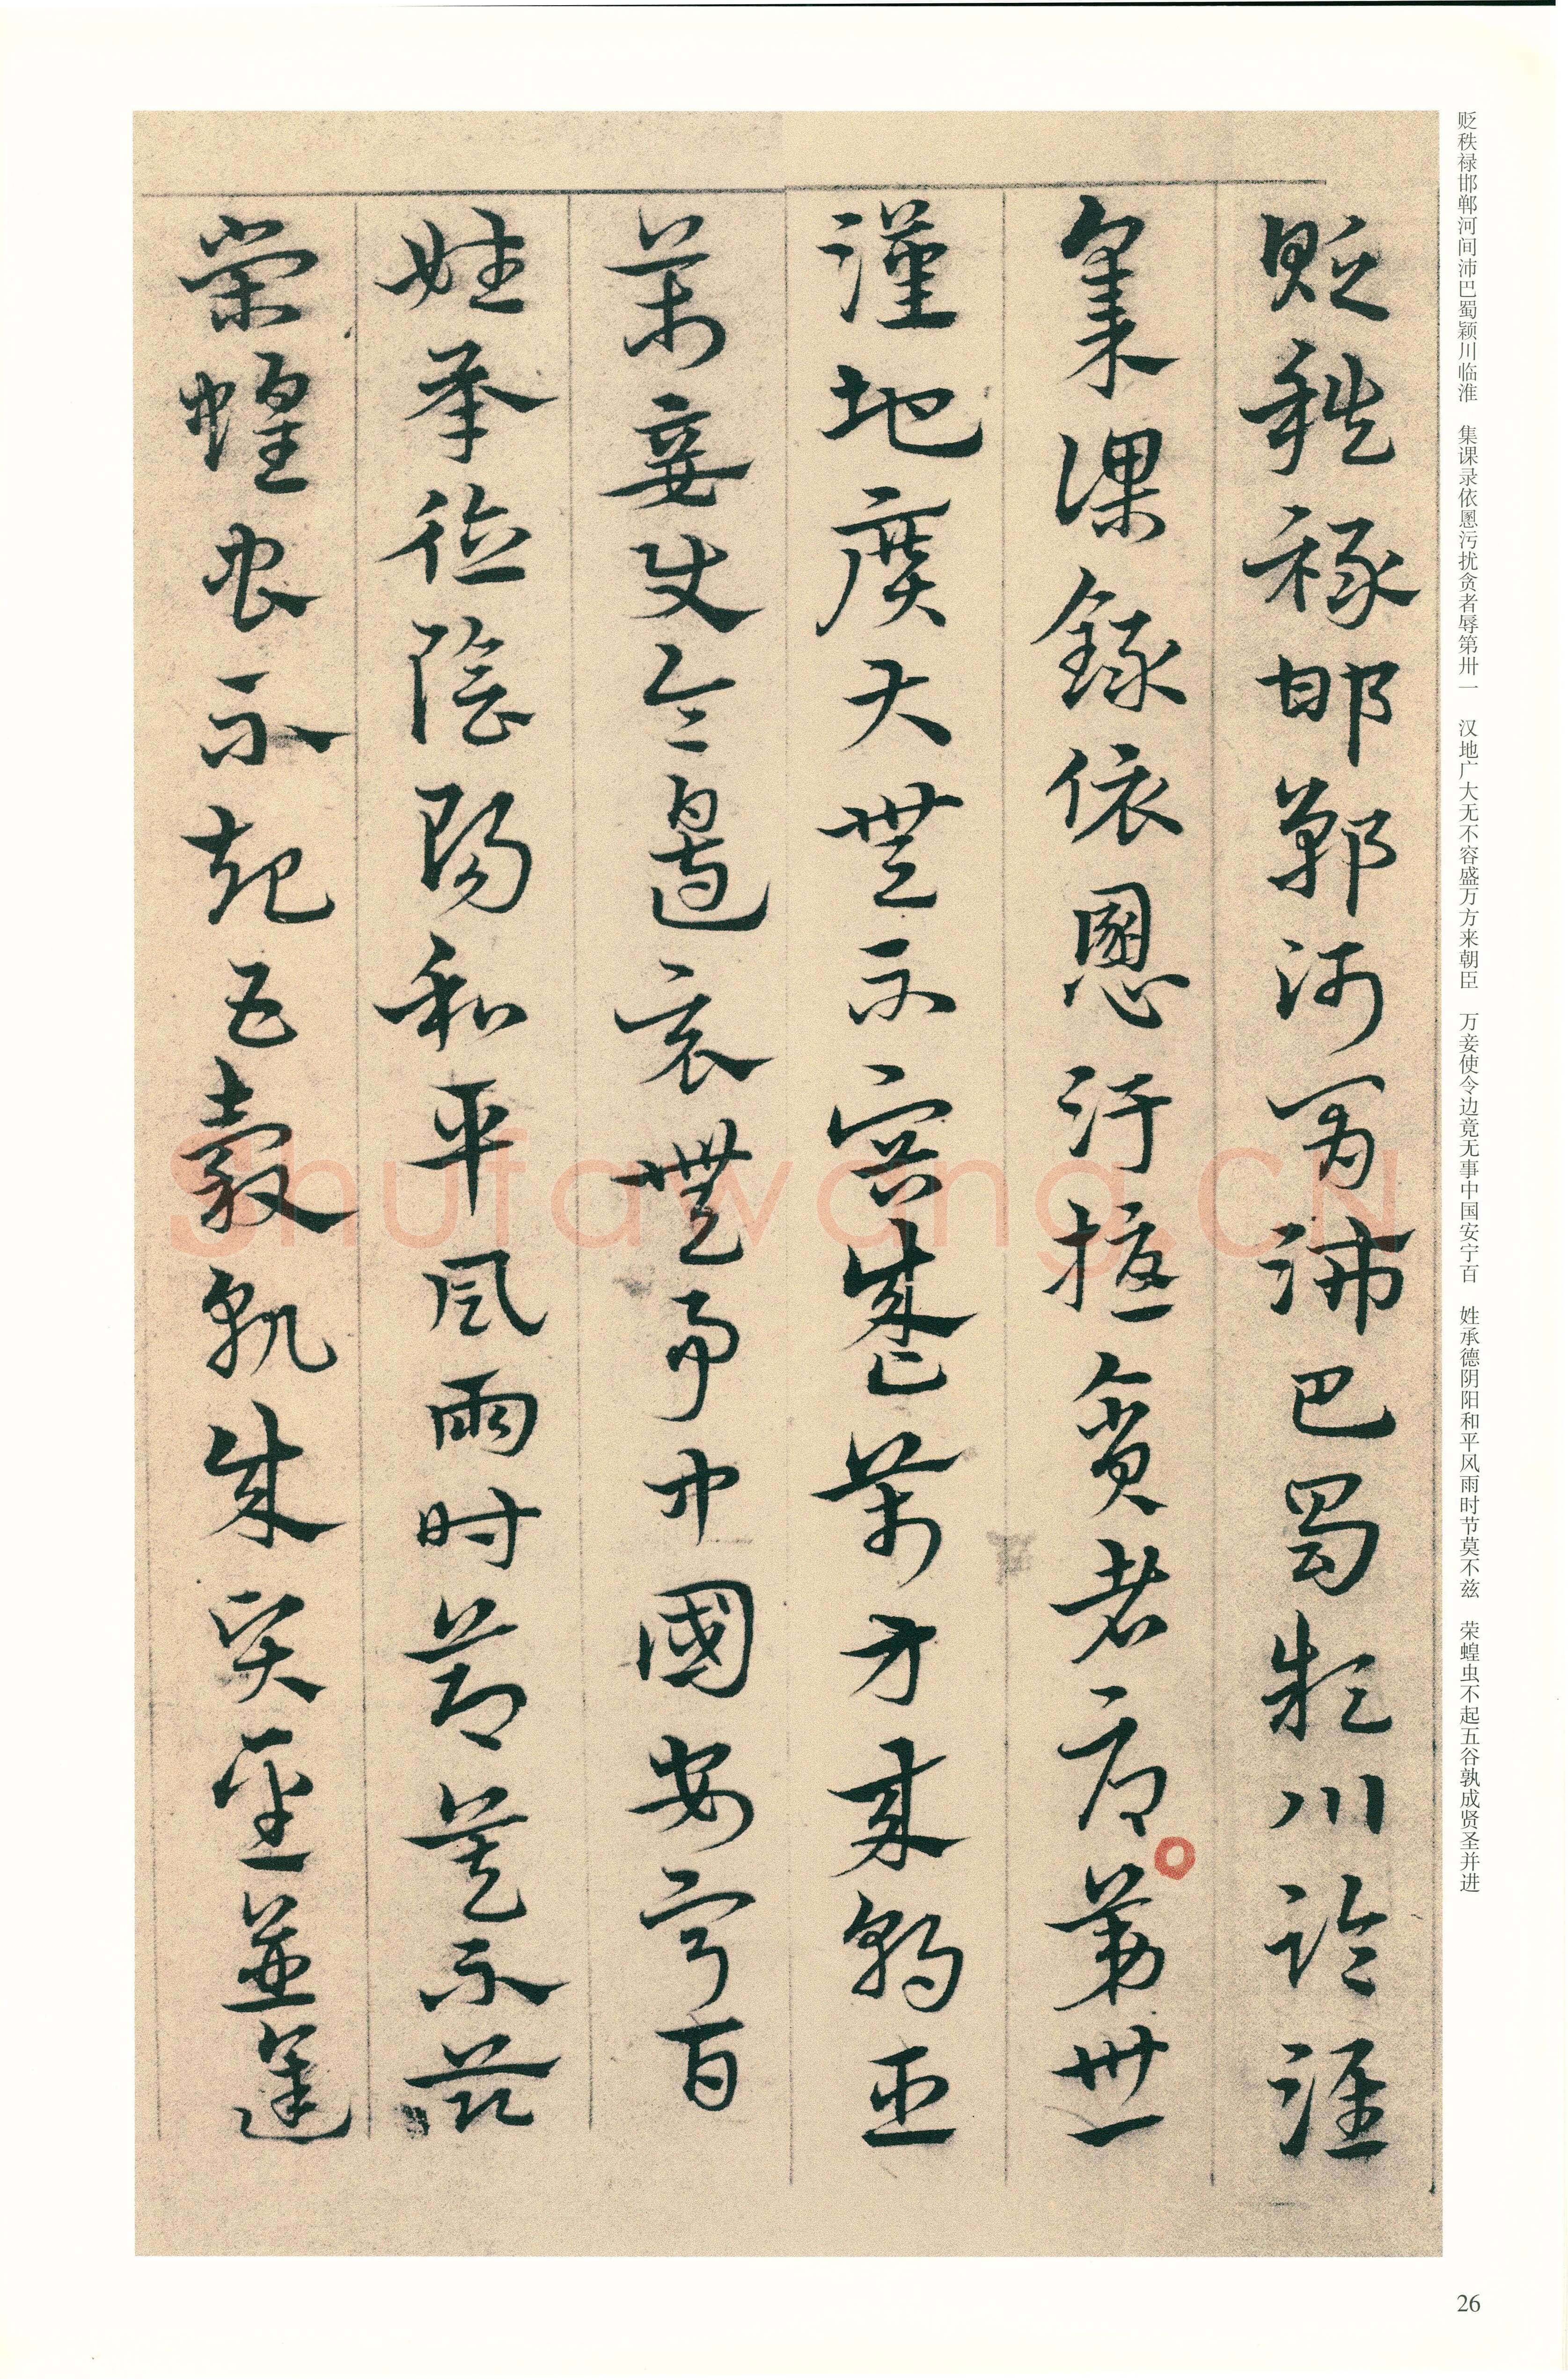 贬秩禄邯郸河间沛巴蜀颖川临淮 集课录依慁污扰贪者辱第卅一 汉地广大无不容盛万方来朝臣 万妾使令边竟无事中国安宁百 姓承德阴阳和平风雨时节莫不兹 荣蝗虫不起五谷孰成贤圣并进
貶秩祿邯鄲河間沛巴蜀潁川臨淮
集課錄依慁汙擾貪者辱第卅一
漢地廣大無不容盛萬方來朝臣
萬妾使令邊竟無事中國安寧百
姓承德陰陽和平風雨時節莫不茲
榮蝗虫不起五穀孰成賢聖並進
Shufawang.CN
26